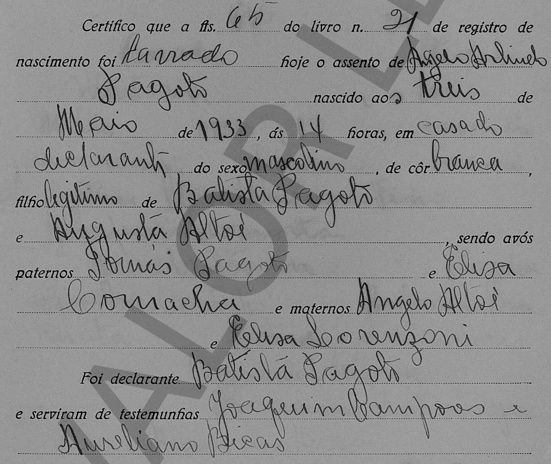 Certifico que a fls. 65 do livro n. 21 de registro de
nascimento foi lavrado hoje o assento de Angelo Arlindo
Pagoto nascido aos treis de
Maio de 1933, ás 14 horas, em casa do
declarante do sexo masculino, de côr branca,
filho legitimo de Batista Pagoto
e Augusta Altoé, sendo avós
paternos Tomás Pagoto e Elisa
Cornachia e maternos Angelo Altoé
e Elisa Lorenzoni
Foi declarante Batista Pagoto
e serviram de testemunhas Joaquim Campos e
Aureliano Bicas
VALOR LE